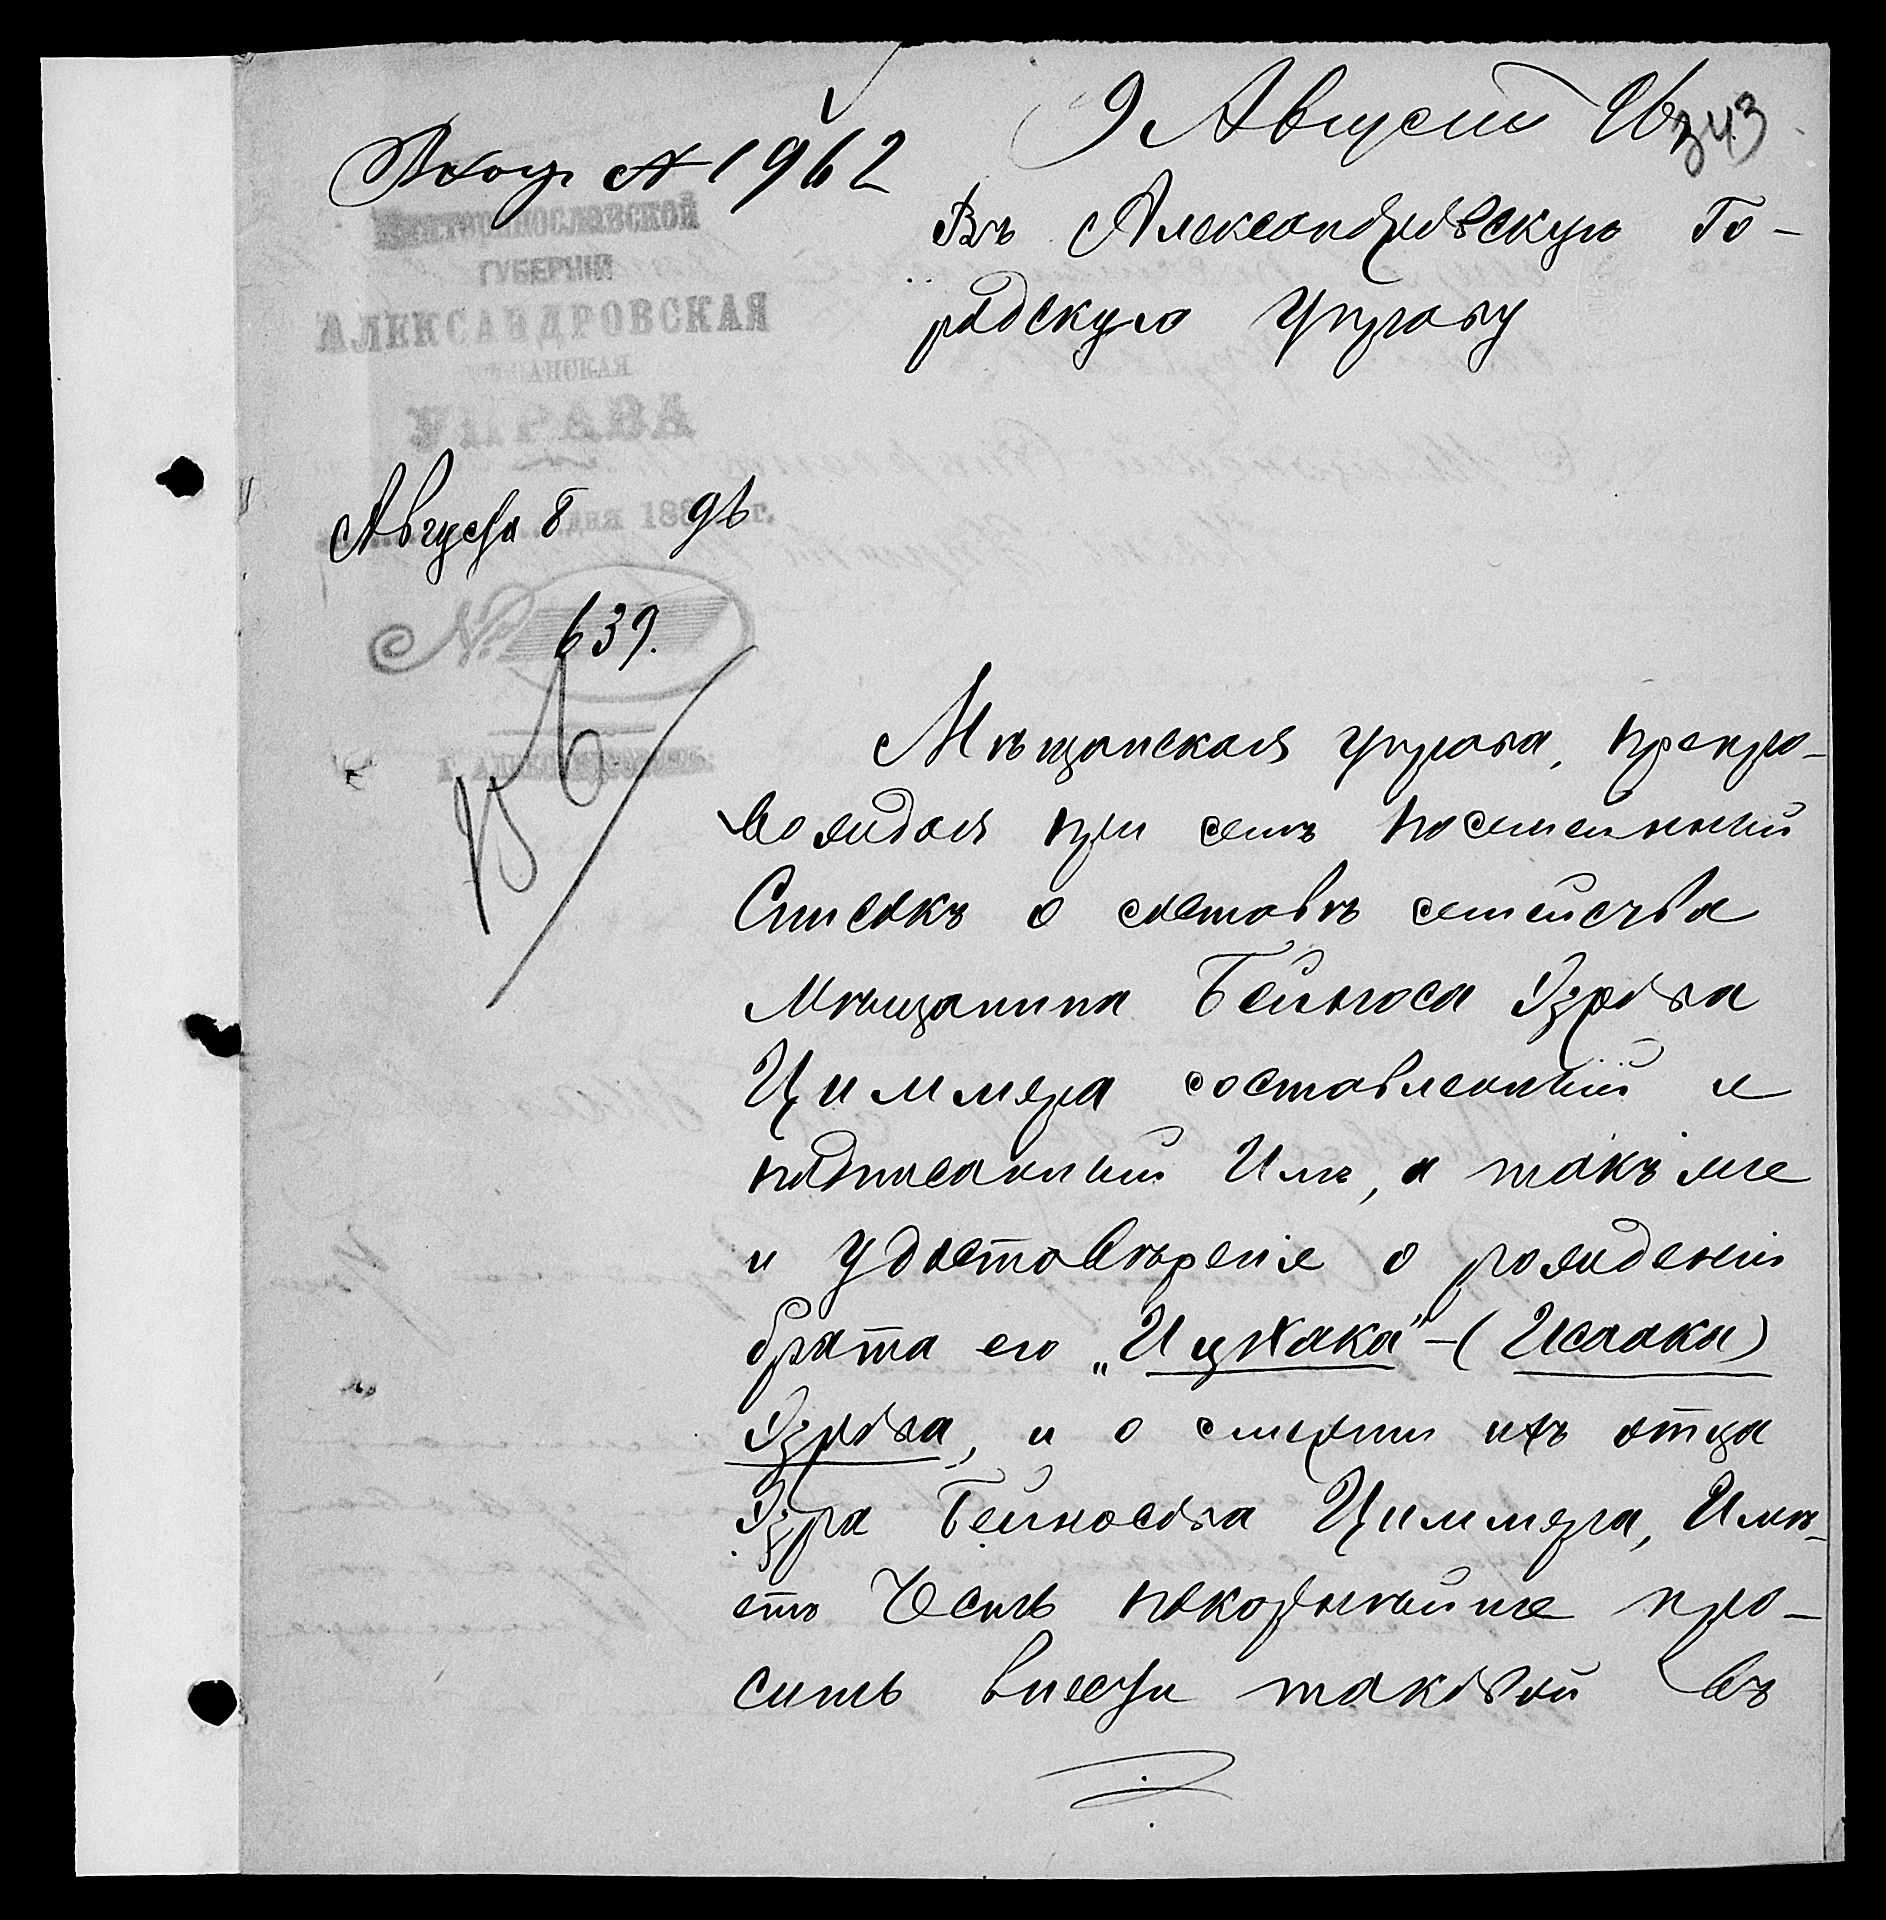 9 Август 96
343
Вход № 1962
Въ Александровскую Го-
родскую Управу
Екатеринославской
ГУБЕРНІИ
АЛЕКСАНДРОВСКАЯ
МѢЩАНСКАЯ
УПРАВА
Августа 8 дня 188 96 г.
№ 639.
Г. АЛЕКСАНДРОВСКЪ.
Мѣщанская управа, препро-
вождая при семъ посемейный
Списокъ о составѣ семейства
Мѣщанина Бейноса Эзрова
Циммера составленный и
подписанный Имъ, а также
и удостовѣреніе о рожденіи
брата его „Ицхака" - (Исаака)
Эзрова, и о смерти ихъ отца
Эзра Бейносова Циммера, Имѣ-
етъ Честь покорнѣйше про-
сить внести таковой въ